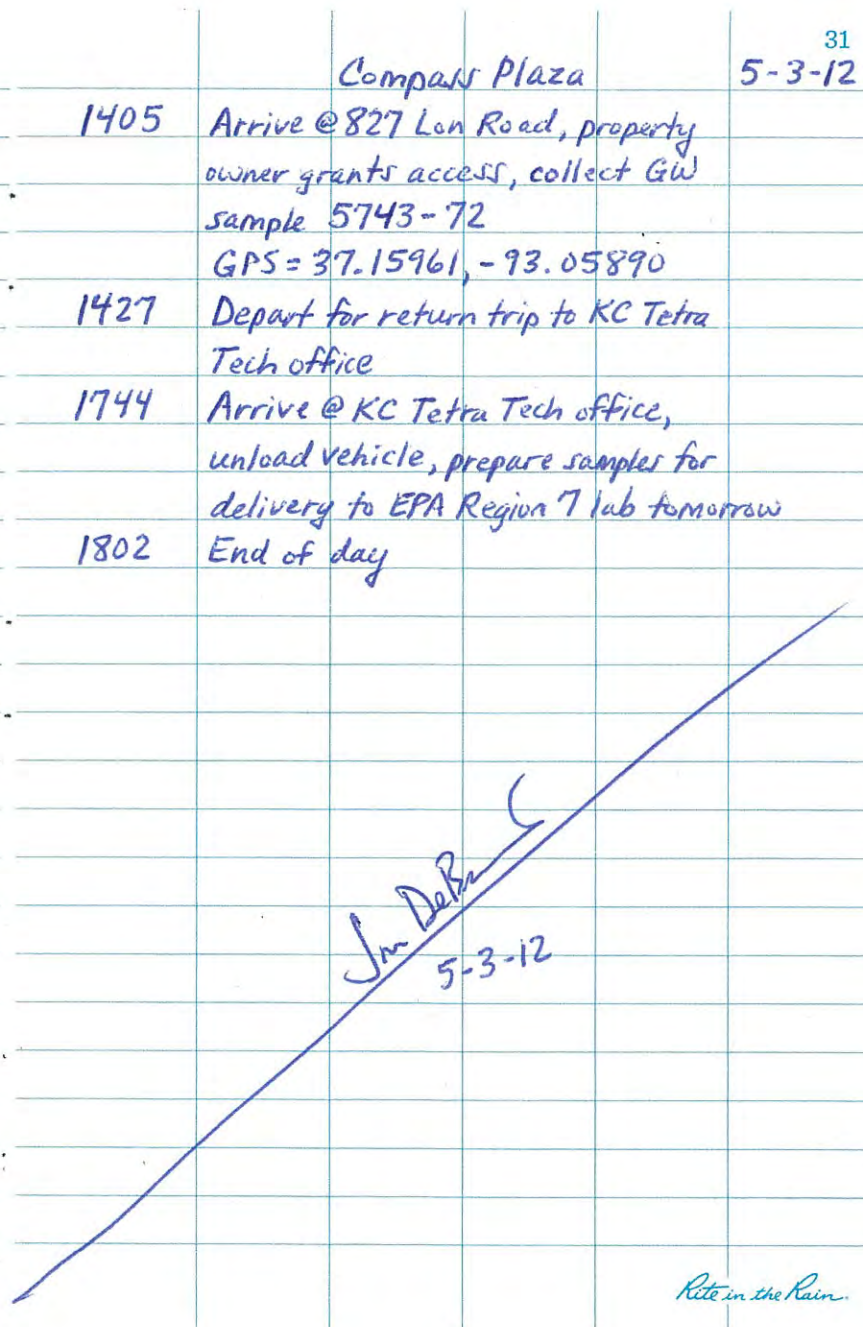 31
Compass Plaza 5-3-12
1405 Arrive @ 827 Lon Road, property
owner grants access, collect GW
sample 5743-72
GPS = 37.15961, -93.05890
1427 Depart for return trip to KC Tetra
Tech office
1744 Arrive @ KC Tetra Tech office,
unload vehicle, prepare samples for
delivery to EPA Region 7 lab tomorrow
1802 End of day
5-3-12
Rite in the Rain.